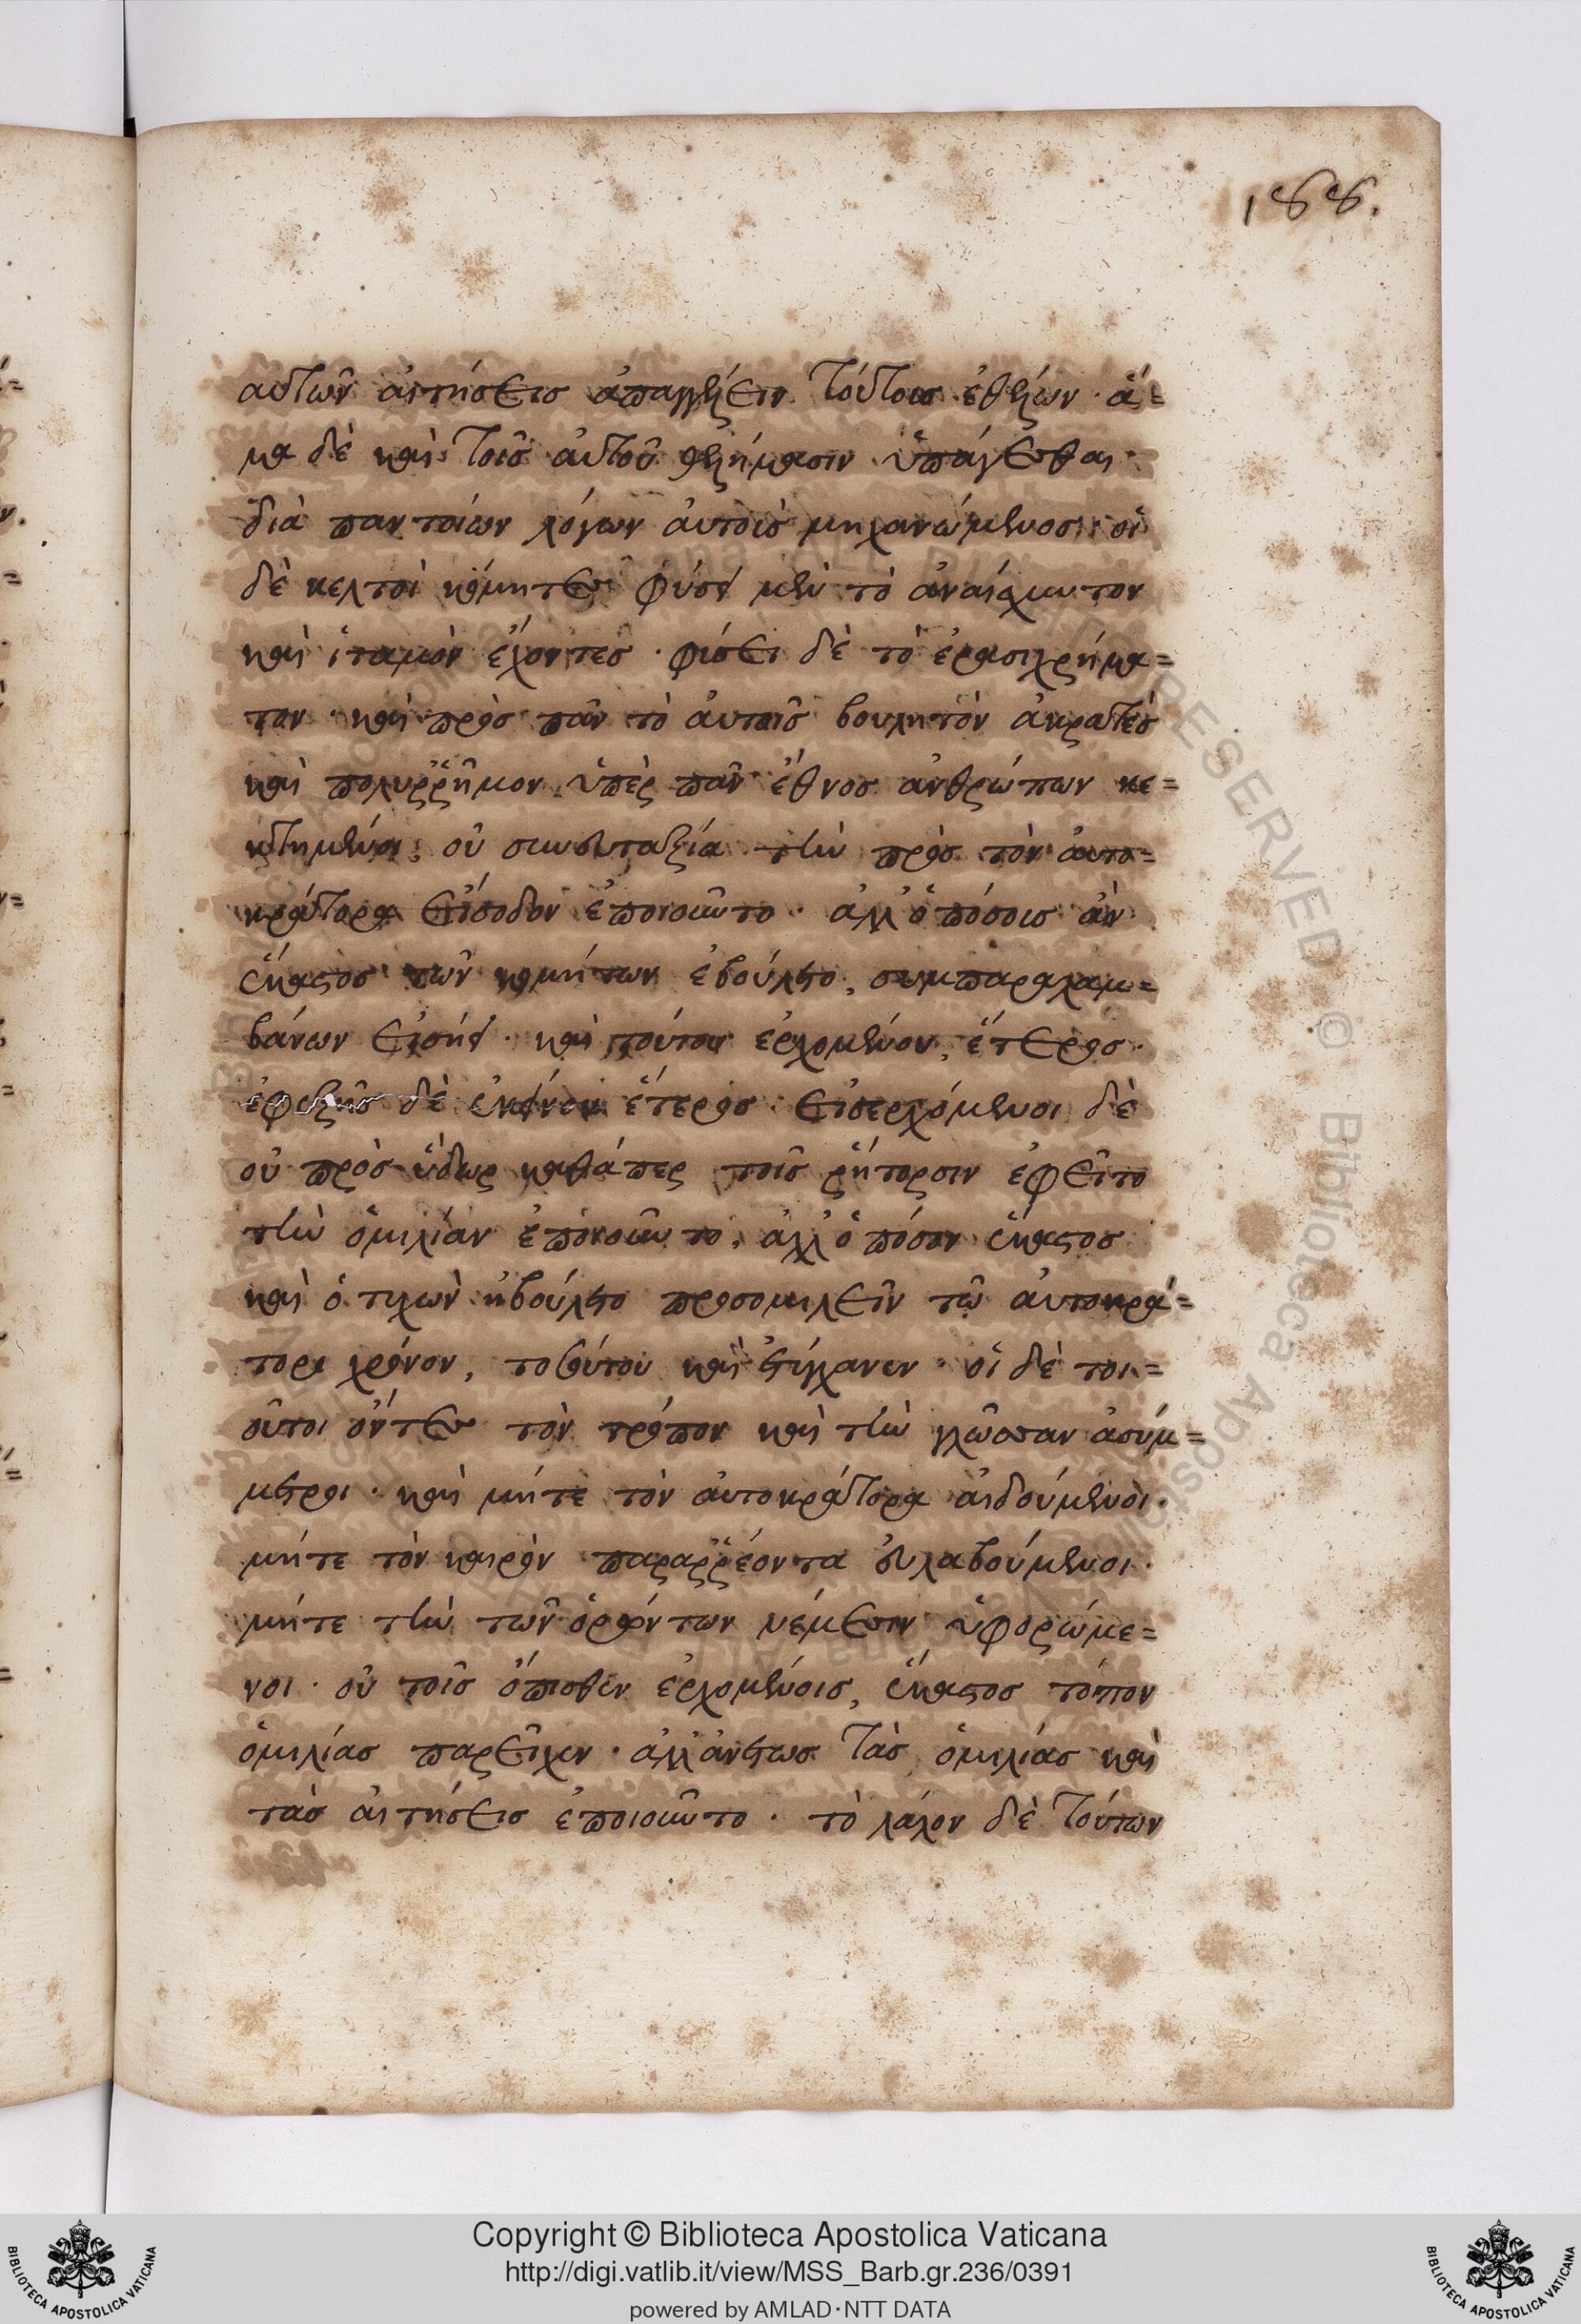 188.
αυτῶν αἰτήσεις ἀπαγγέλλειν τούτοις ἐθέλων· ἅ=
μα δὲ καὶ τοῖς αὐτοῦ θελήμασιν ὑπάγεσθαι·
διὰ παντοίων λόγων αὐτοὺς μηχανώμενος· οἱ
δὲ κελτοὶ κόμητες φύσει μὲν τὸ ἀναίσχυντον
καὶ ἰταμὸν ἔχοντες· φύσει δὲ τὸ ἐρασιχρήμα=
τον· καὶ πρὸς πᾶν τὸ αὐτοῖς βουλητὸν ἀκρατὲς
καὶ πολυρρῆμον ὑπὲρ πᾶν ἔθνος ἀνθρώπων κε=
κτημένοι· οὐ συνευταξία τὴν πρὸς τὸν αὐτο=
κράτορα εἴσοδον ἐποιοῦντο· ἀλλ' ὁπόσοις ἂν
ἕκαστος τῶν κομήτων ἐβούλετο, συμπαραλαμ=
βάνων εἰσήει· καὶ τούτου ἐρχομένου, ἕτερος·
ἐφεξῆς δὲ ἐκείνου ἕτερος· εἰσερχόμενοι δὲ
οὐ πρὸς ὕδωρ καθάπερ τοῖς ῥήτορσιν ἐφεῖτο
τὴν ὁμιλίαν ἐποιοῦντο· ἀλλ' ὁπόσον ἕκαστος
καὶ ὁ τυχὼν ἠβούλετο προσομιλεῖν τῷ αὐτοκρά=
τορι χρόνον, τοσούτου καὶ ἐτύγχανεν· οἱ δὲ τοι=
οῦτοι ὄντες τὸν τρόπον καὶ τὴν γλῶσσαν ἀσύμ=
μετροι· καὶ μήτε τὸν αὐτοκράτορα αἰδούμενοι·
μήτε τὸν καιρὸν παραρρέοντα εὐλαβούμενοι·
μήτε τὴν τῶν ὁρώντων νέμεσιν ὑφορώμε=
νοι· οὐ τοῖς ὄπισθεν ἐρχομένοις, ἕκαστος τόπον
ὁμιλίας παρεῖχεν· ἀλλ' ἀνέτως τὰς ὁμιλίας καὶ
τὰς αἰτήσεις ἐποιοῦντο· τὸ λάλον δὲ τούτων
Copyright © Biblioteca Apostolica Vaticana
http://digi.vatlib.it/view/MSS_Barb.gr.236/0391
powered by AMLAD·NTT DATA
BIBLIOTECA APOSTOLICA VATICANA
BIBLIOTECA APOSTOLICA VATICANA